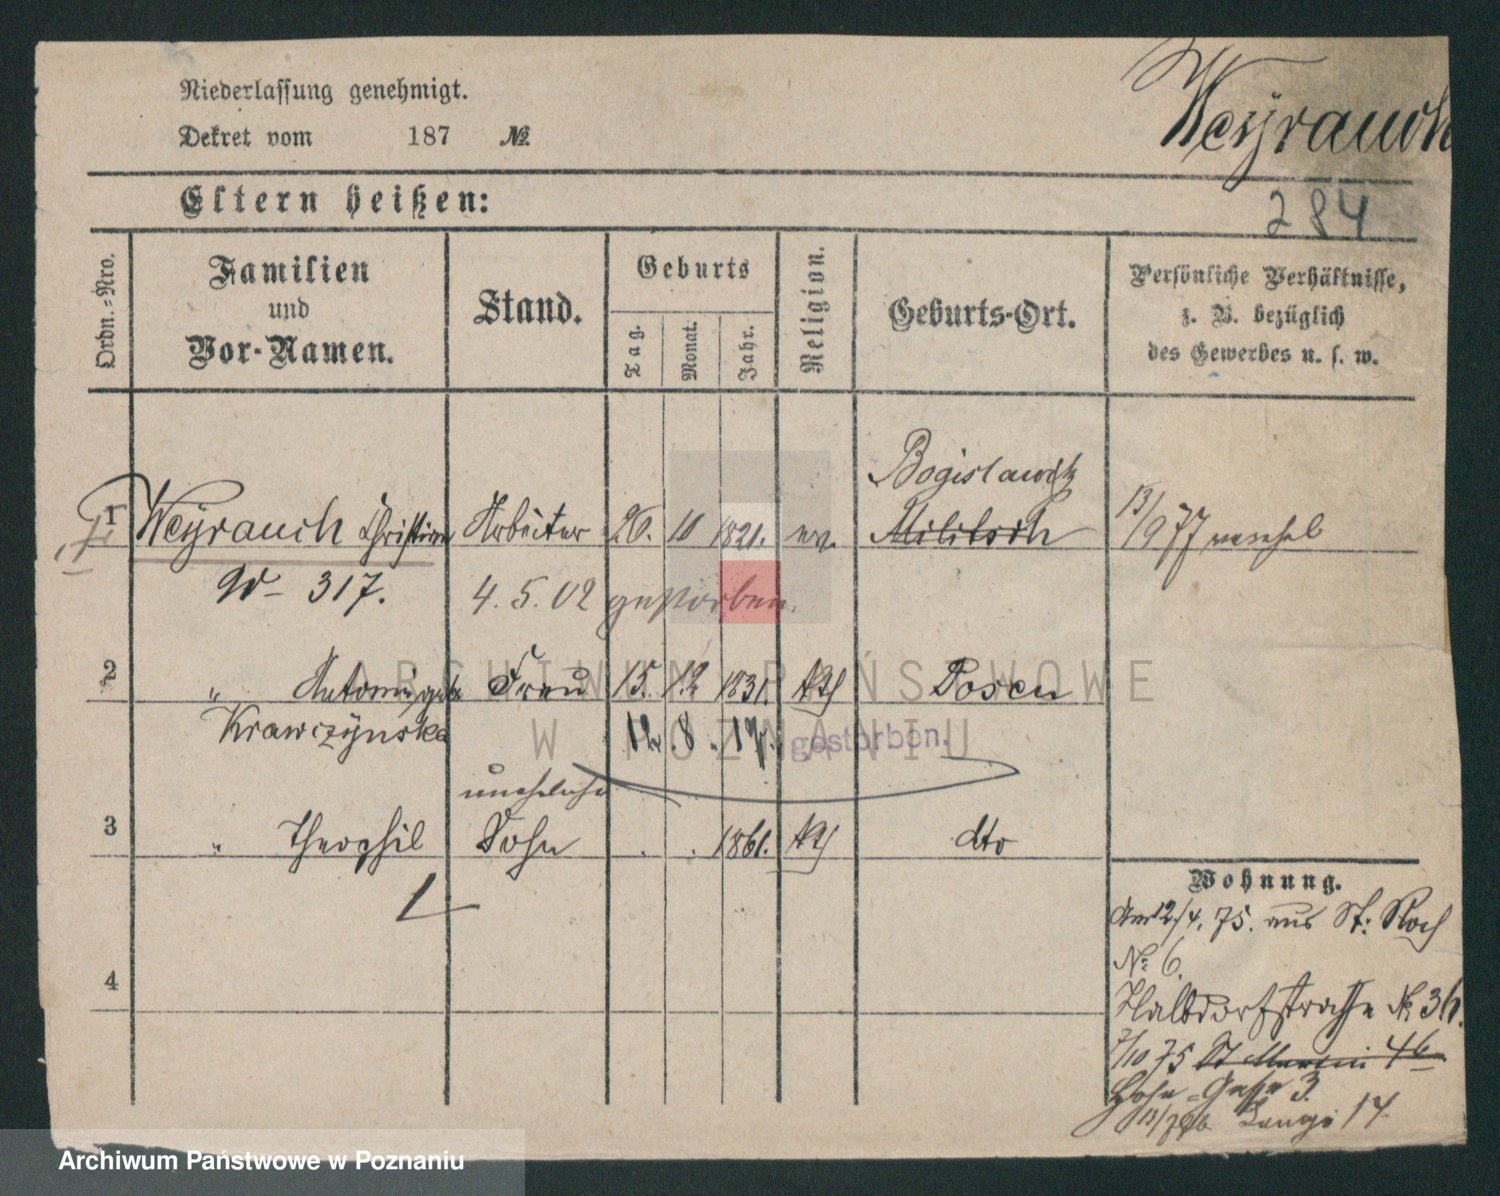 Niederlassung genehmigt.
Dekret vom 187 №
Weyrauch
284
Eltern heißen:
Ordn.-Nro.
Familien
und
Vor-Namen.
Stand.
Geburts
Tag.
Monat.
Jahr.
Religion.
Geburts-Ort.
Persönliche Verhältnisse,
z. B. bezüglich
des Gewerbes u. s. w.
Bogislawitz
1 Weyrauch Christian Arbeiter 26. 10 1821. ev. Militsch 13/9 77
317. 4. 5. 02 gestorben.
2 " Antonie, geb. Frau 15. 12 1831. kth Posen
Krawczynska 12. 8. 17. gestorben.
uneheliche
3 " Theophil Sohn . . 1861. kth dto
4
Wohnung.
Am 12/4. 75. aus St: Roch
№ 6.
Halbdorfstraße № 36.
7/10 75 St Martin 46
Gasse 3.
Lange 14
ARCHIWUM PAŃSTWOWE
W POZNANIU
Archiwum Państwowe w Poznaniu